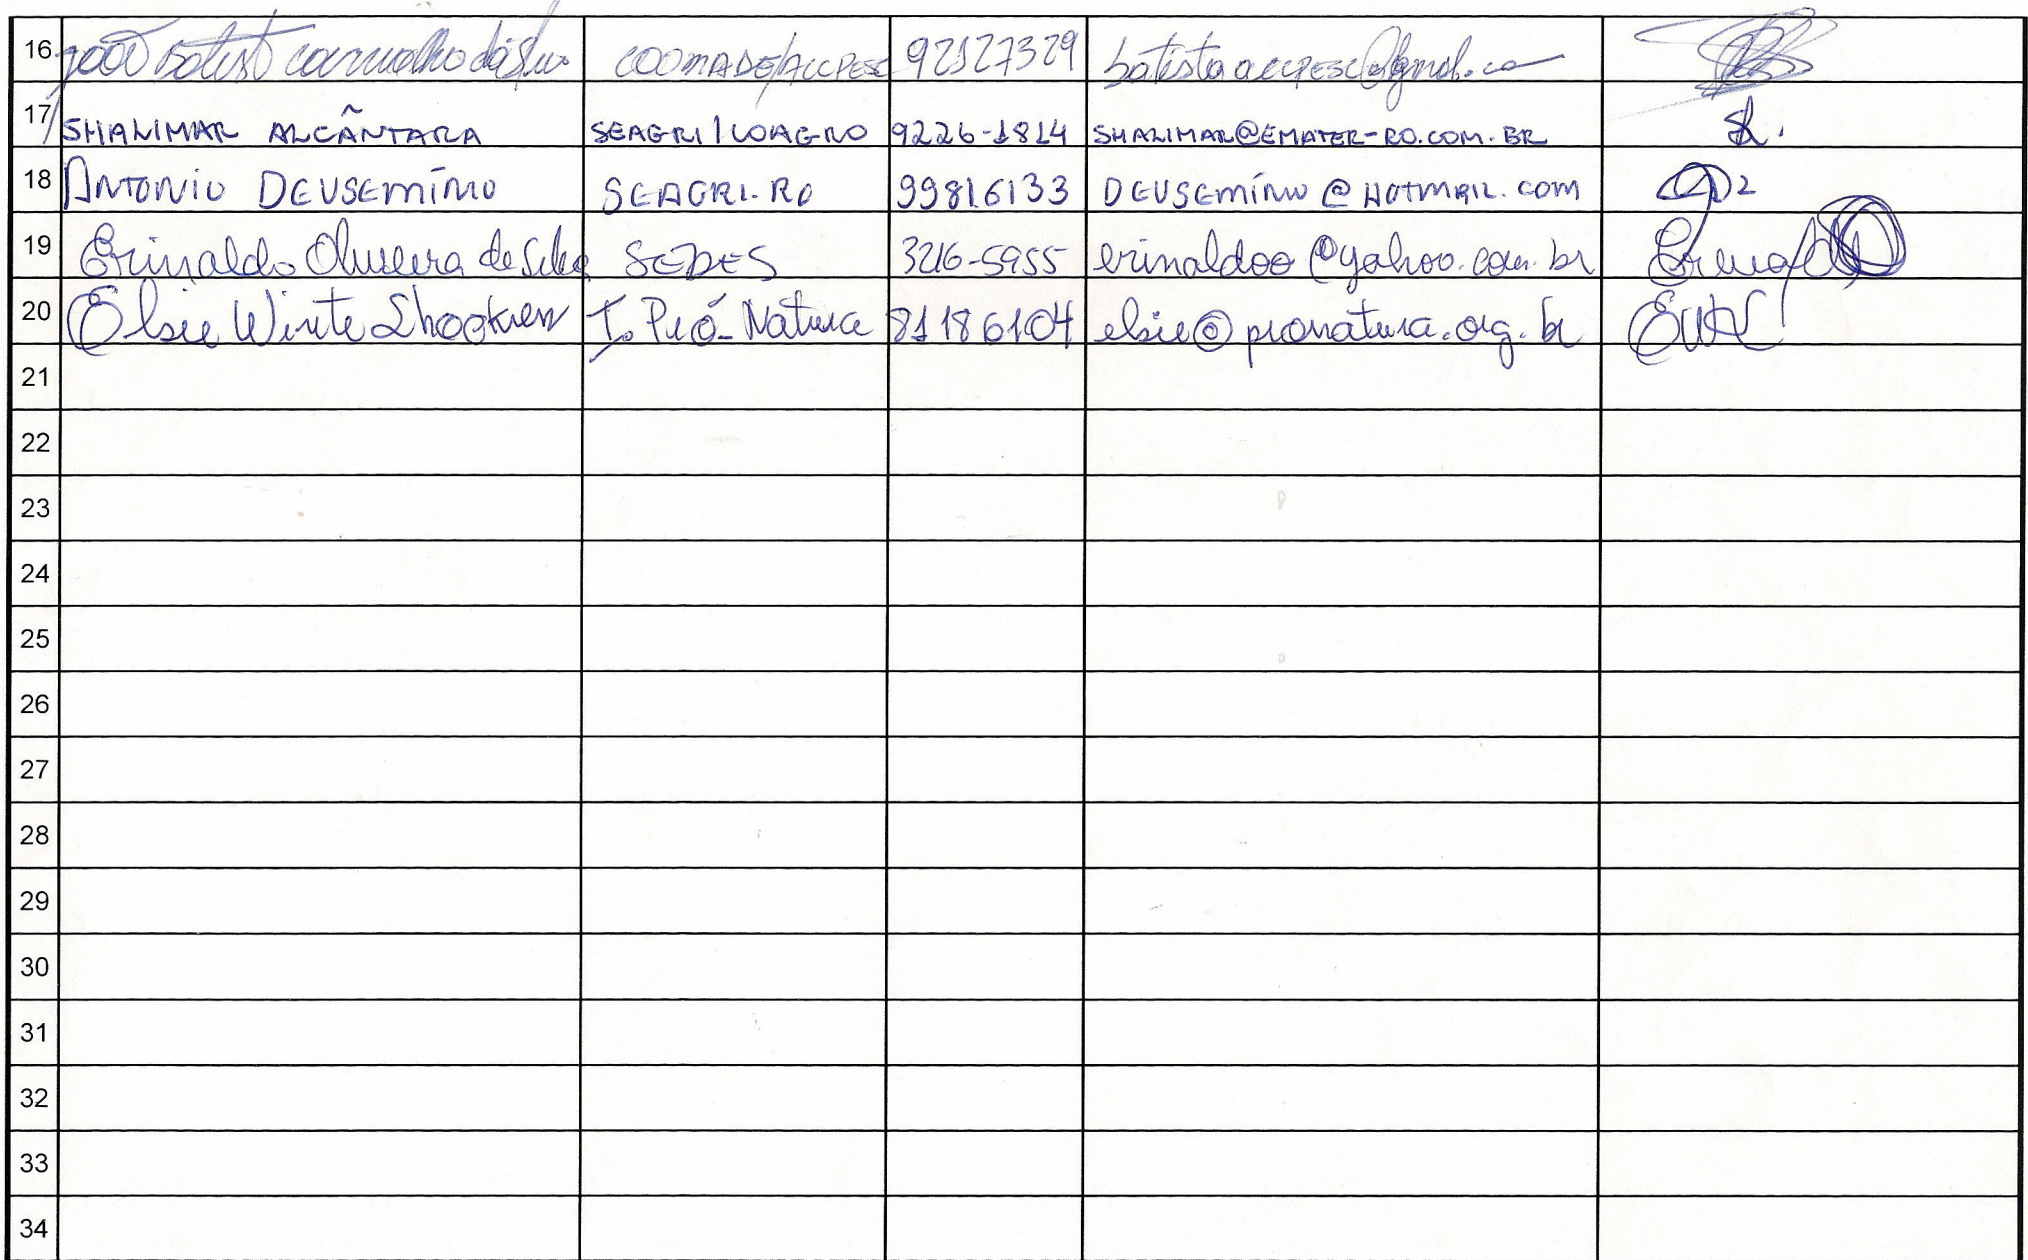 16 João Batist Carvalho da Silva COOMADE/ACCPESC 92127329
17 SHALIMAR ALCÂNTARA SEAGRI/COAGRO 9226-1814 SHALIMAR@EMATER-RO.COM.BR
18 ANTONIO DEUSEMÍNIO SEAGRI-RO 99816133 DEUSEMÍNIO@HOTMAIL.COM
19 Erinaldo Oliveira da Silva SEDES 3216-5955 erinaldoo@yahoo.com.br
20 Elsie I. Pró-Natura 81186104 elsie@pronatura.org.br
21
22
23
24
25
26
27
28
29
30
31
32
33
34